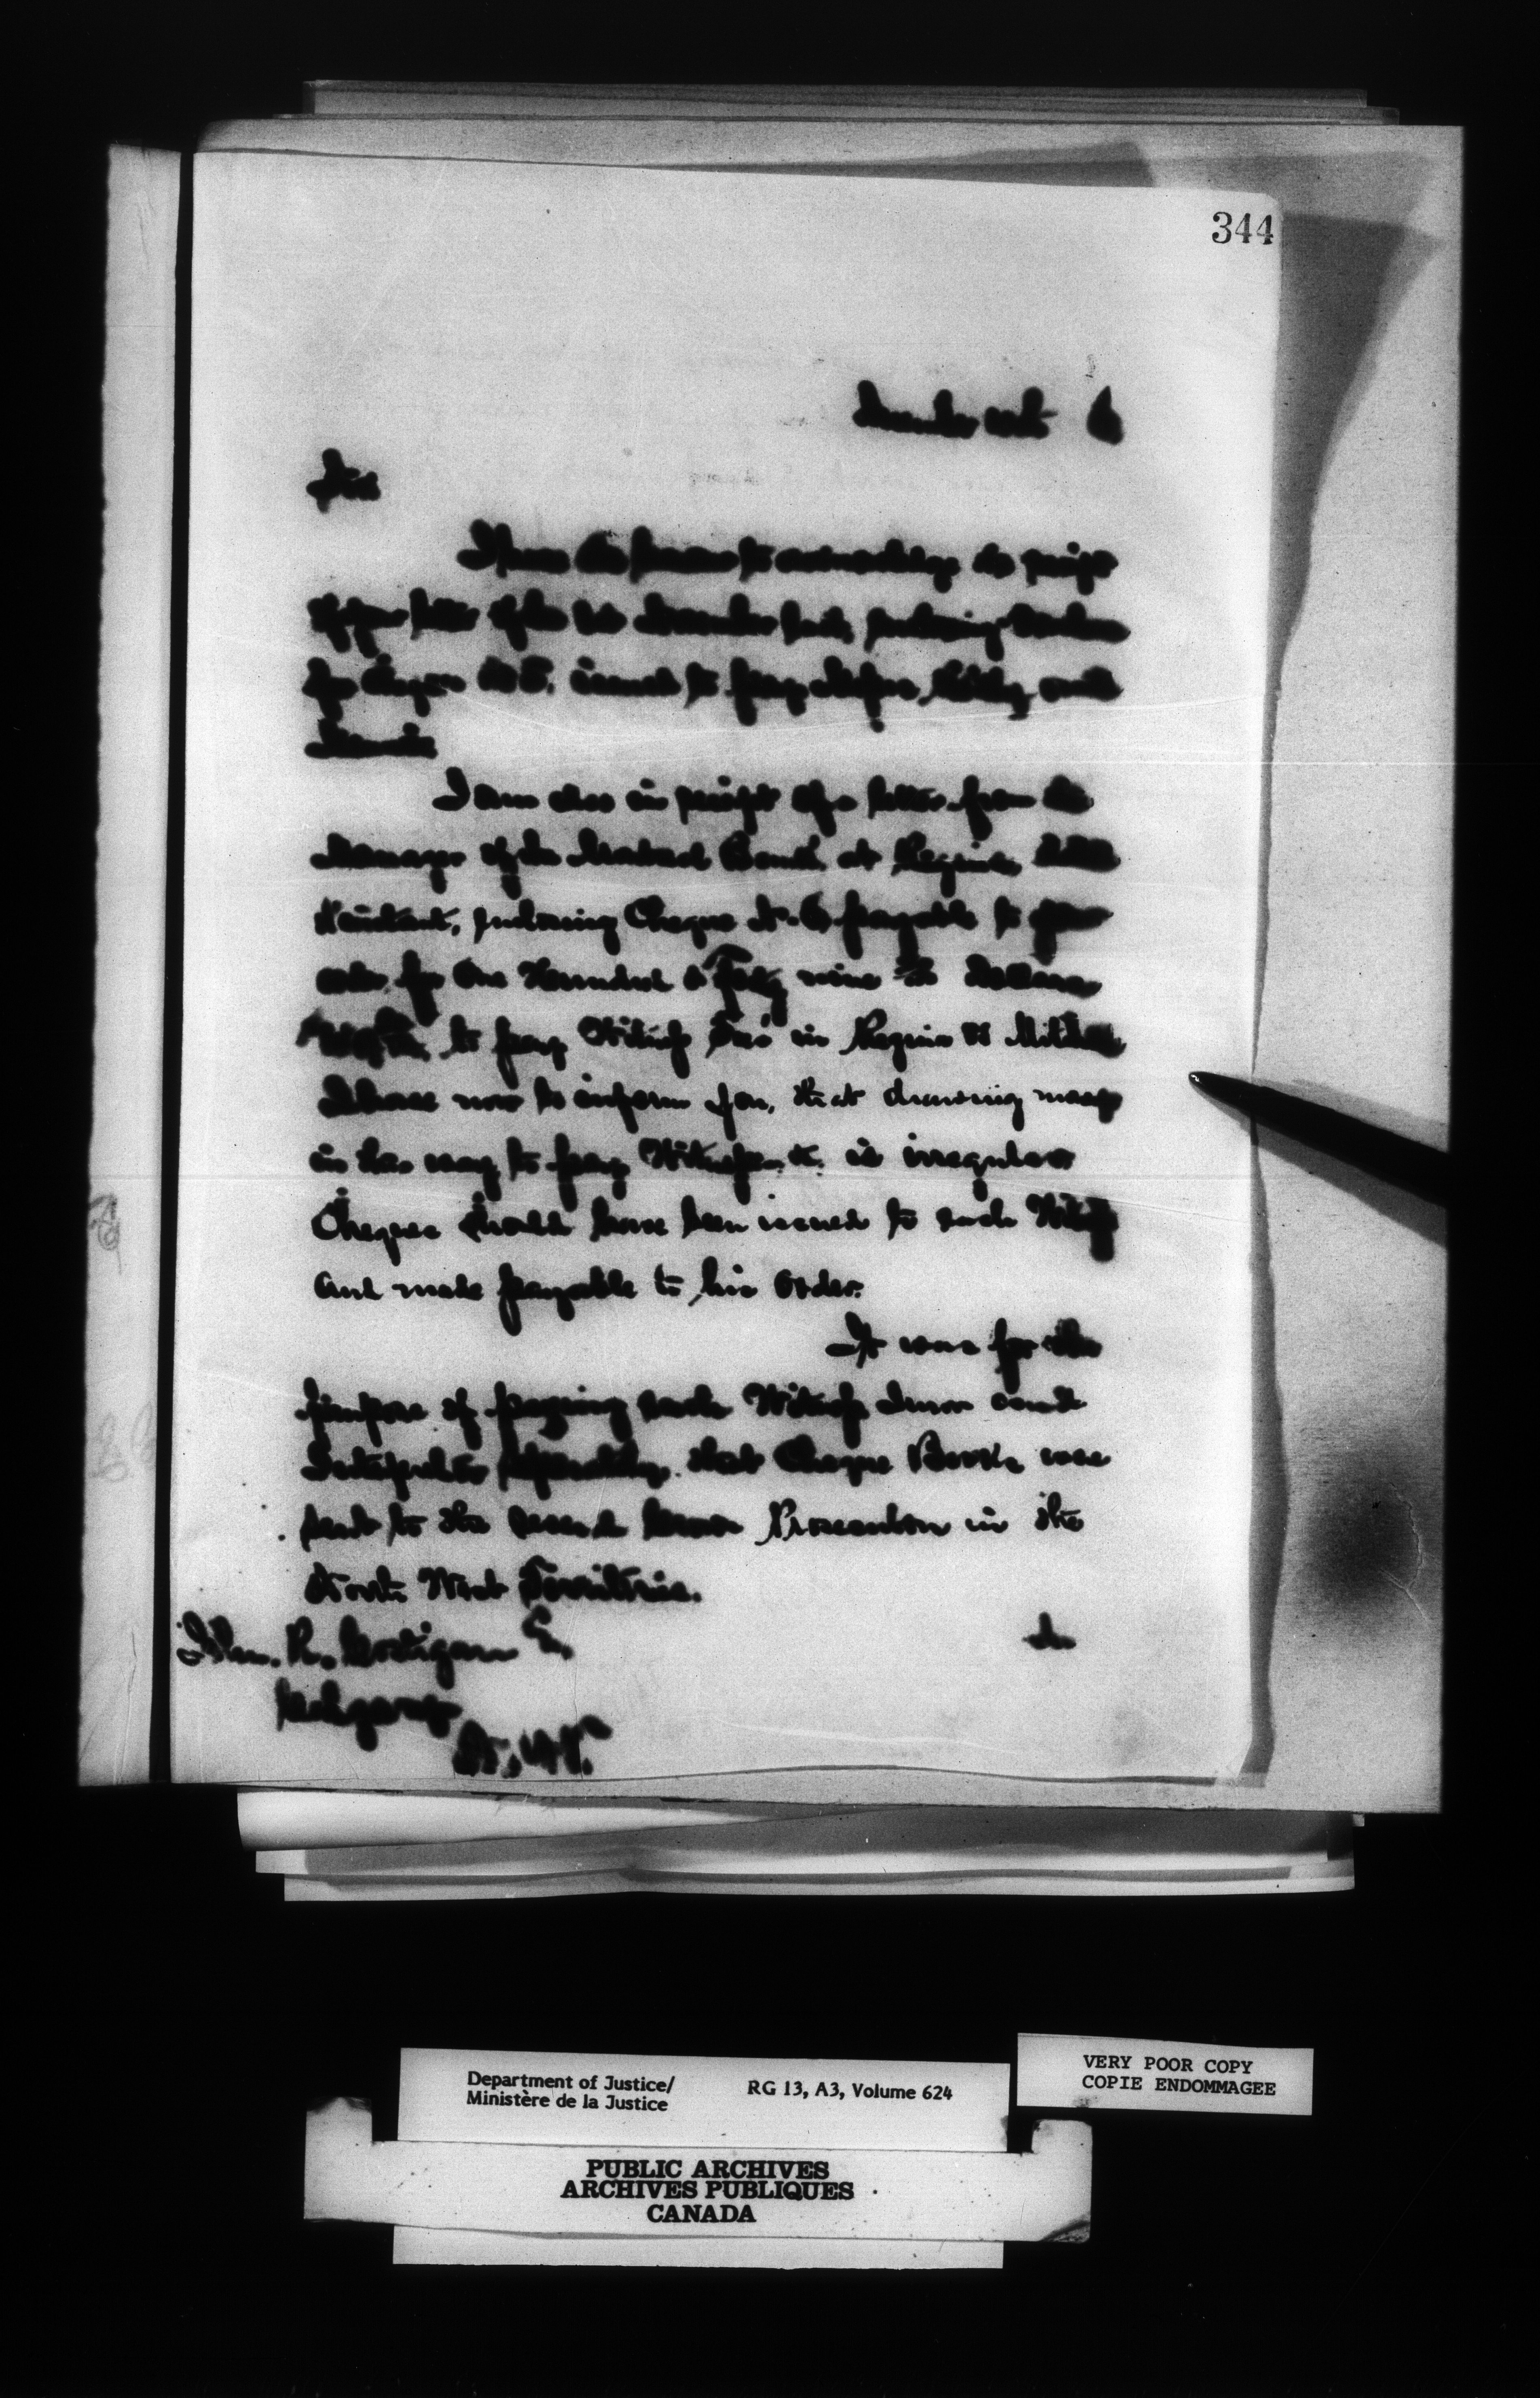 344
December
Sir
I have the honor to acknowledge the receipt
of your letter of the December
for Cheque issued to pay
I am also in receipt of a letter from the
Manager of the Montreal Bank at Regina
Cheque No. 6 payable to your
order for One Hundred & Forty nine dollars
to pay Witness fees in Regina vs
I have now to inform you, that drawing money
in this way to pay Witnesses &c. is irregular
Cheques should have been issued to each Witness
and made payable to his order.
It was for the
purpose of paying each Witness Juror and
Interpreter separately that Cheque Books were
sent to the several Crown Prosecutors in the
North West Territories.
R. Costigan Esq.
Calgary
N.W.T.
Department of Justice/
Ministère de la Justice
RG 13, A3, Volume 624
VERY POOR COPY
COPIE ENDOMMAGEE
PUBLIC ARCHIVES
ARCHIVES PUBLIQUES
CANADA